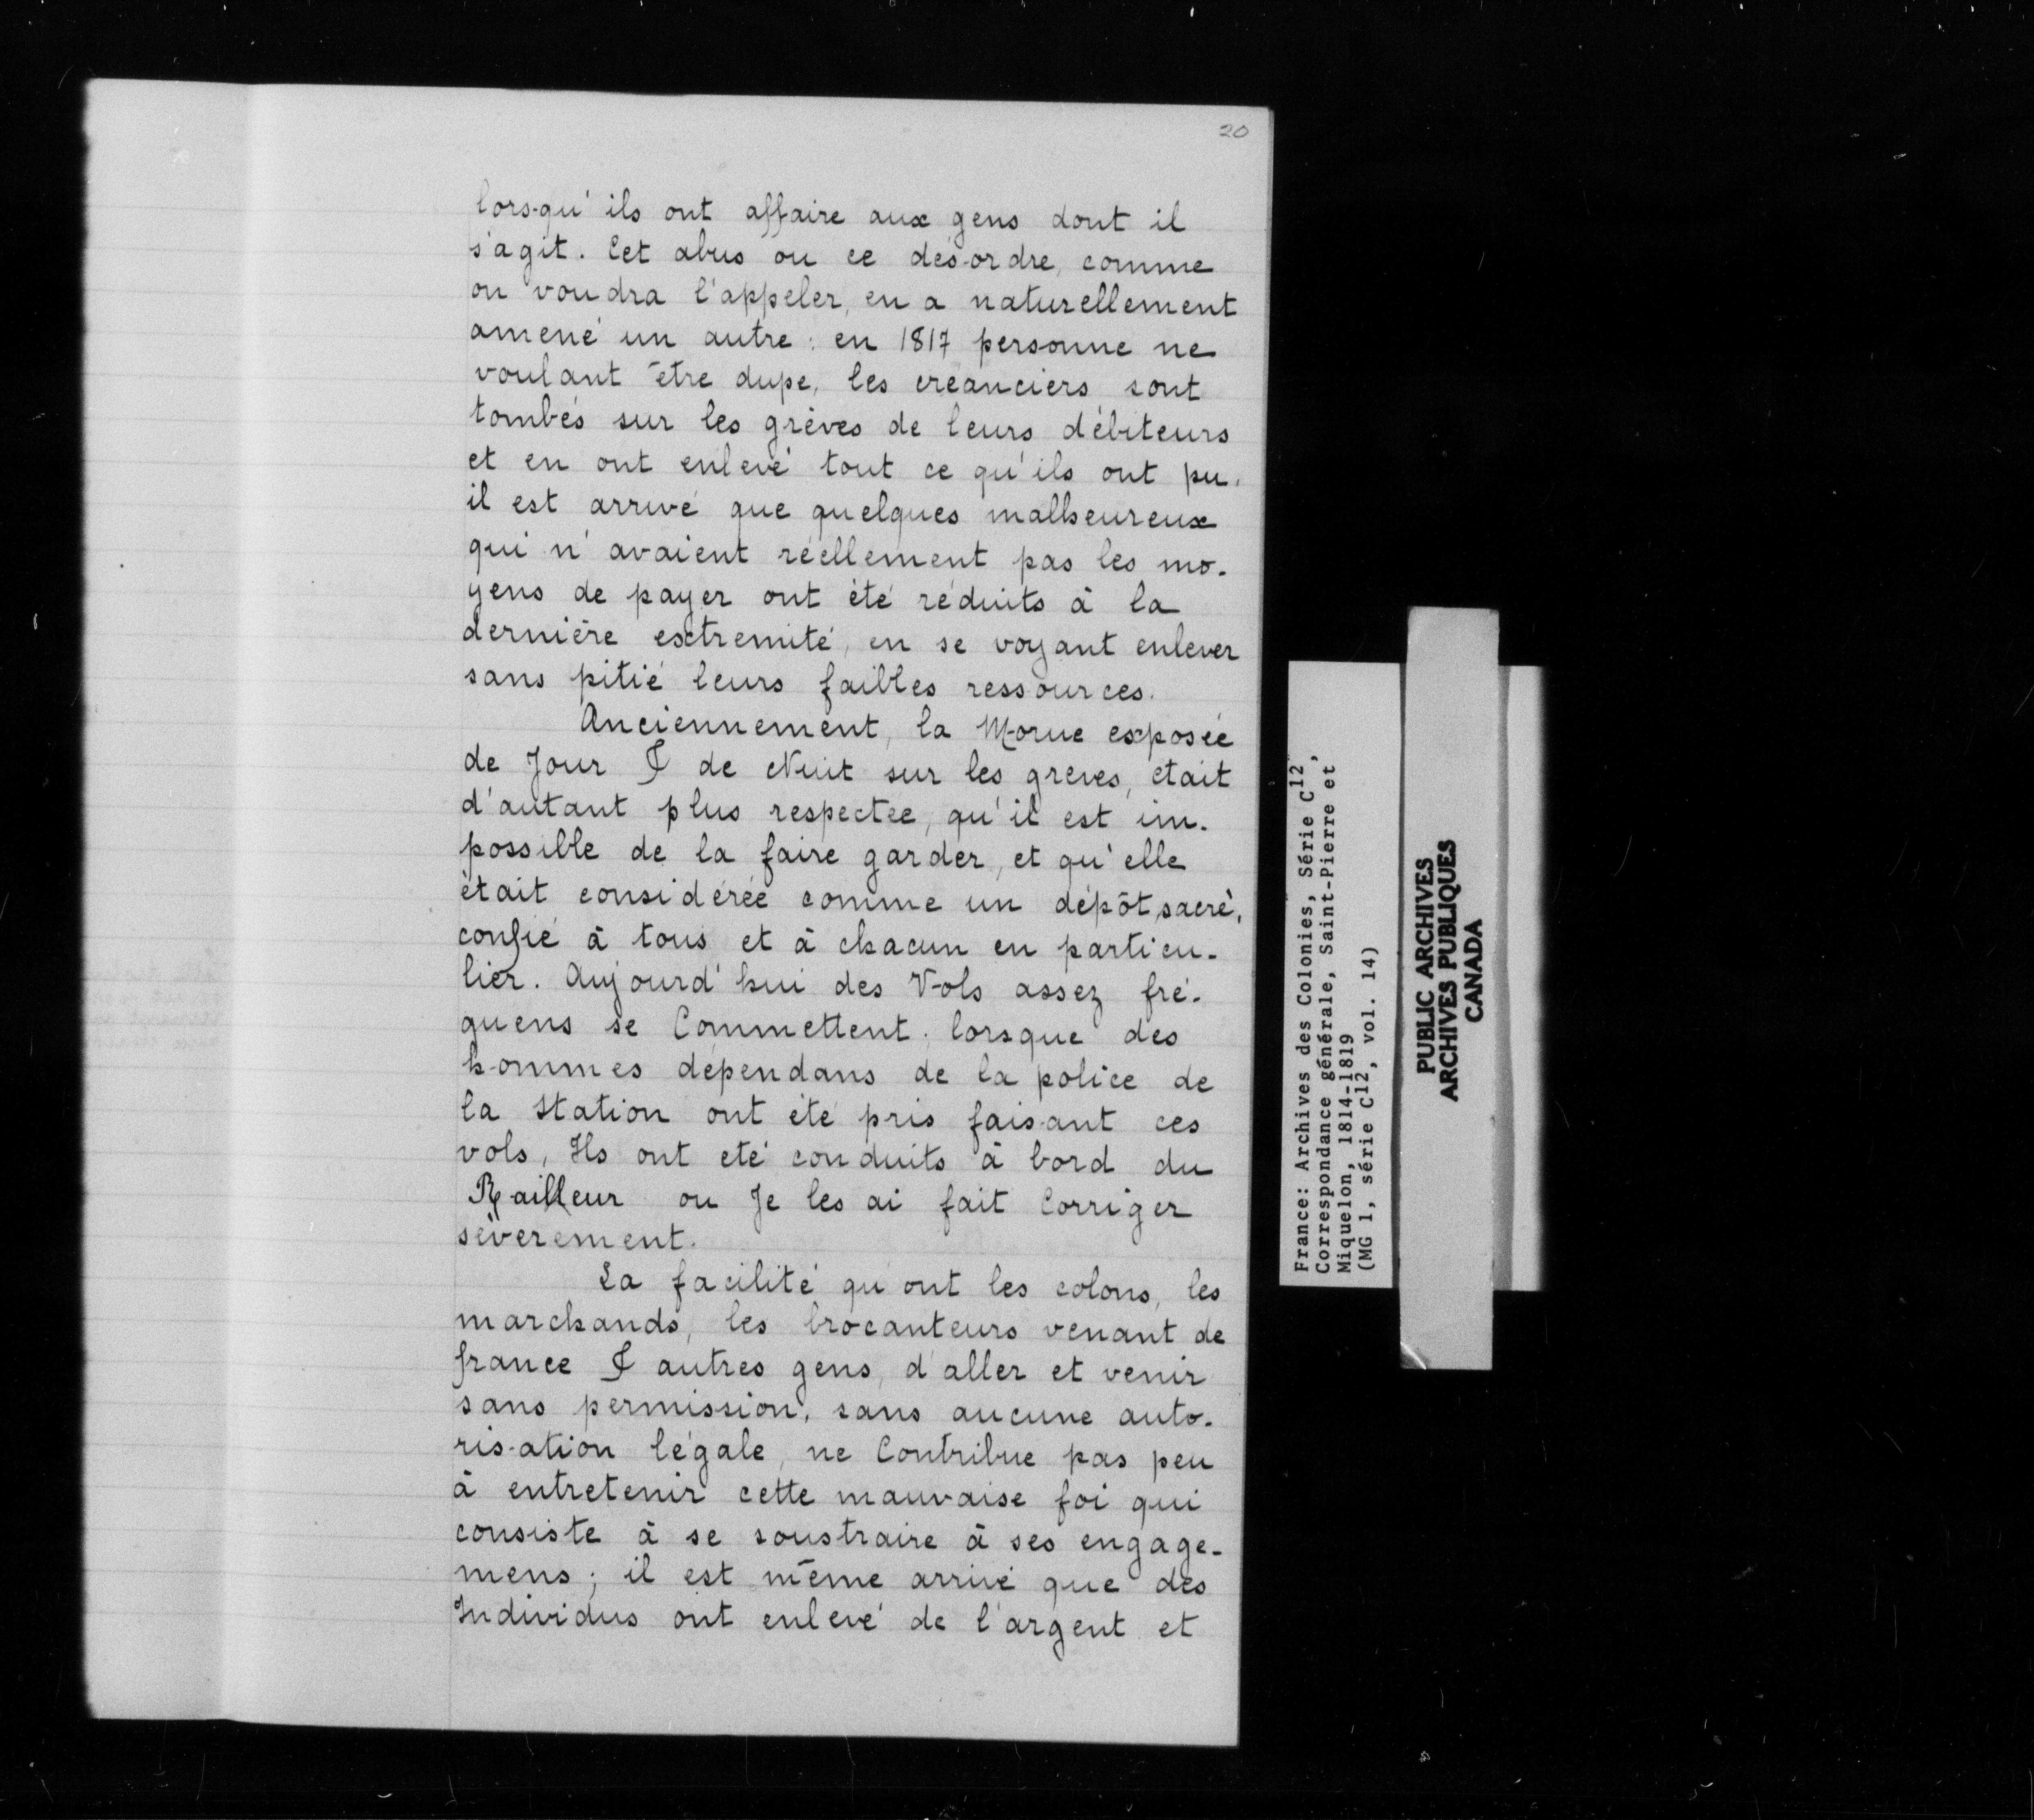 20
lorsqu'ils ont affaire aux gens dont il
s'agit. Cet abus ou ce désordre, comme
on voudra l'appeler, en a naturellement
amené un autre : en 1817 personne ne
voulant être dupe, les créanciers sont
tombés sur les grèves de leurs débiteurs
et en ont enlevé tout ce qu'ils ont pu,
il est arrivé que quelques malheureux
qui n'avaient réellement pas les mo-
yens de payer ont été réduits à la
dernière extremité, en se voyant enlever
sans pitié leurs faibles ressources.
Anciennement, la Morue exposée
de Jour & de Nuit sur les greves, etait
d'autant plus respectée, qu'il est im-
possible de la faire garder, et qu'elle
était considérée comme un dépôt sacré,
confié à tous et à chacun en particu-
lier. Aujourd'hui des Vols assez fré-
quens se Commettent. lorsque des
hommes dépendans de la police de
la Station ont été pris faisant ces
vols, Ils ont eté conduits à bord du
Railleur ou Je les ai fait Corriger
sévèrement.
La facilité qu'ont les colons, les
marchands, les brocanteurs venant de
france & autres gens, d'aller et venir
sans permission, sans aucune auto-
risation légale, ne Contribue pas peu
à entretenir cette mauvaise foi qui
consiste à se soustraire à ses engage-
mens ; il est même arrivé que des
Individus ont enlevé de l'argent et
France: Archives des Colonies, Série C12,
Correspondance générale, Saint-Pierre et
Miquelon, 1814-1819
(MG 1, série C12, vol. 14)
PUBLIC ARCHIVES
ARCHIVES PUBLIQUES
CANADA